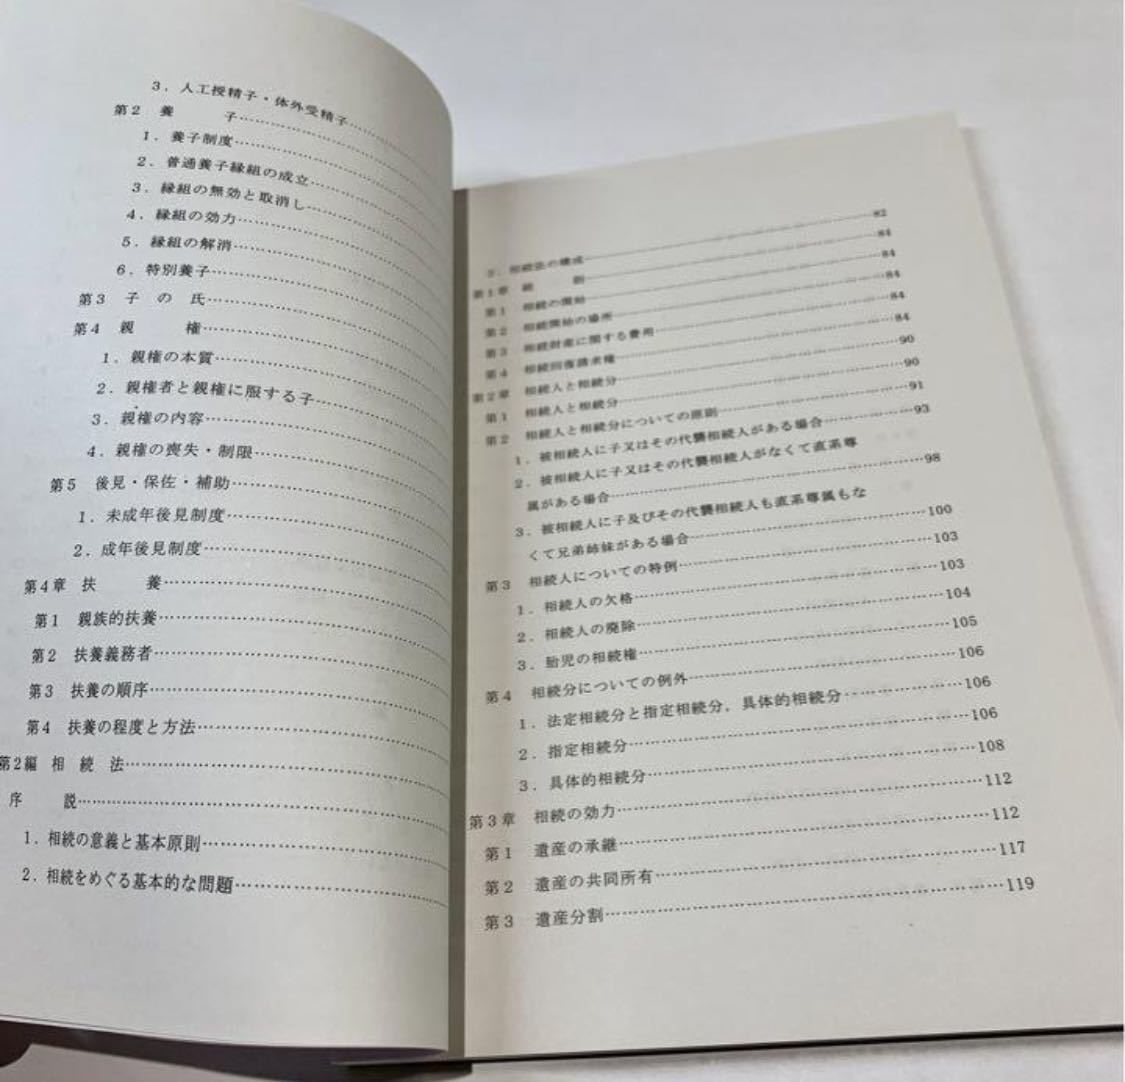 3．人工授精子・体外受精子……………
第2　養　　　子……………
1．養子制度……………
2．普通養子縁組の成立……………
3．縁組の無効と取消し……………
4．縁組の効力……………
5．縁組の解消……………
6．特別養子……………
第3　子　の　氏……………
第4　親　　　権……………
1．親権の本質……………
2．親権者と親権に服する子……………
3．親権の内容……………
4．親権の喪失・制限……………
第5　後見・保佐・補助……………
1．未成年後見制度……………
2．成年後見制度……………
第4章　扶　　　養……………
第1　親族的扶養……………
第2　扶養義務者……………
第3　扶養の順序……………
第4　扶養の程度と方法……………
第2編　相　続　法……………
序　　説……………
1．相続の意義と基本原則……………
2．相続をめぐる基本的な問題……………
3．相続法の構成……………82
第1章　総　　　則……………84
第1　相続の開始……………84
第2　相続開始の場所……………84
第3　相続財産に関する費用……………84
第4　相続回復請求権……………84
第2章　相続人と相続分……………90
第1　相続人と相続分……………90
第2　相続人と相続分についての原則……………91
1．被相続人に子又はその代襲相続人がある場合……………93
2．被相続人に子又はその代襲相続人がなくて直系尊
属がある場合……………98
3．被相続人に子及びその代襲相続人も直系尊属もな
くて兄弟姉妹がある場合……………100
第3　相続人についての特例……………103
1．相続人の欠格……………103
2．相続人の廃除……………104
3．胎児の相続権……………105
第4　相続分についての例外……………106
1．法定相続分と指定相続分，具体的相続分……………106
2．指定相続分……………106
3．具体的相続分……………108
第3章　相続の効力……………112
第1　遺産の承継……………112
第2　遺産の共同所有……………117
第3　遺産分割……………119